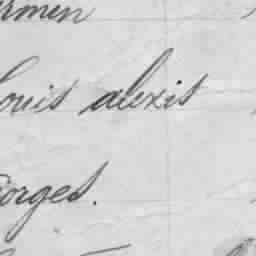 rmen
ouis alexis
orges.